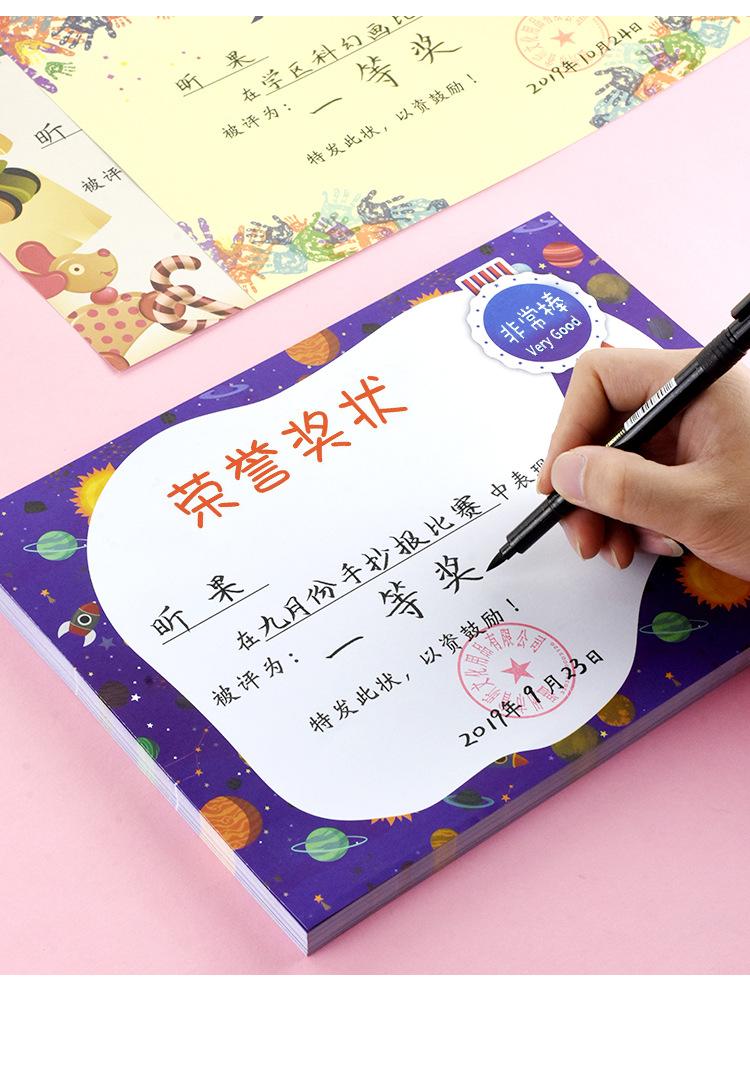 昕 果
在学区科幻画比
被评为：一 等 奖
特发此状，以资鼓励！
2019年10月24日
昕
被评
非常棒
Very Good
荣誉奖状
昕 果
在九月份手抄报比赛中表现
被评为：一 等 奖
特发此状，以资鼓励！
文化用品有限公司
2019年9月23日